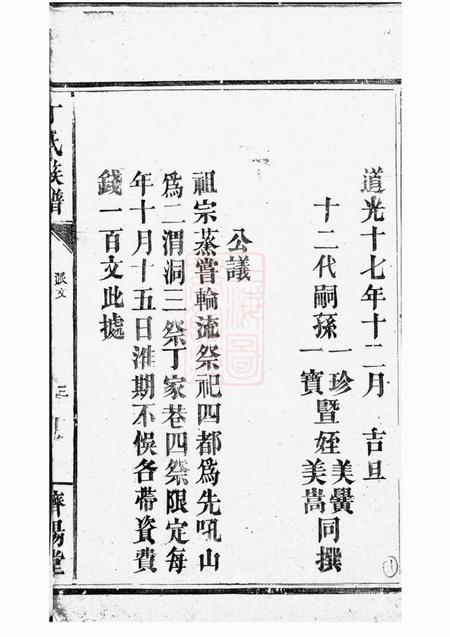 道光十七年十二月 吉旦
十二代嗣孫一珍一寶暨姪美黌美嵩同撰
公議
祖宗蒸嘗輪流祭祀四都為先吼山
為二渭洞三祭丁家巷四祭限定每
年十月十五日淮期不候各帶資費
錢一百文此據
丁氏族譜
派文
三
濟陽堂
①